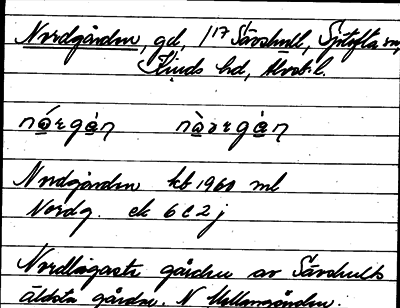 Nordgården, gd, 1/17 Sävshult, Sjötofta sn,
Kinds hd, Älvsb. l.
nórgán nàurgán
Nordgården kb 1960 ml
Nordg. ek 6C2j
Nordligaste gården av Sävshults
äldsta gårdar. N Mellangården.